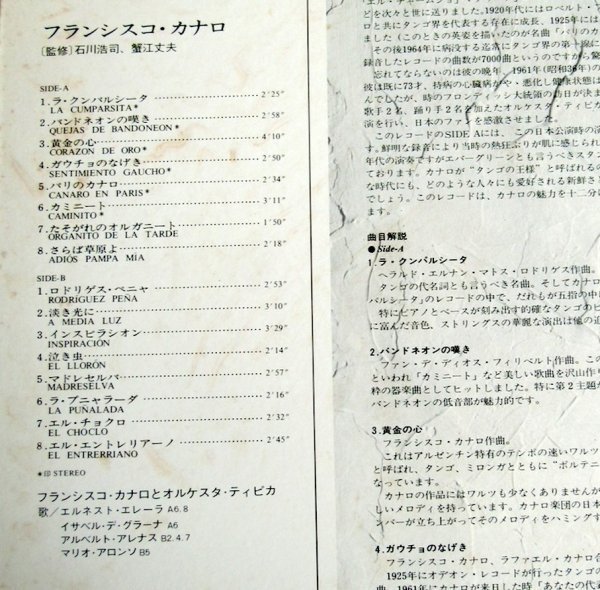 フランシスコ・カナロ
〔監修〕石川浩司、蟹江丈夫
SIDE-A
1.ラ・クンパルシータ……2'25"
LA CUMPARSITA*
2.バンドネオンの嘆き……2'58"
QUEJAS DE BANDONEON*
3.黄金の心……4'10"
CORAZON DE ORO*
4.ガウチョのなげき……2'50"
SENTIMIENTO GAUCHO*
5.パリのカナロ……2'34"
CANARO EN PARIS*
6.カミニート……3'11"
CAMINITO*
7.たそがれのオルガニート……1'50"
ORGANITO DE LA TARDE
8.さらば草原よ……2'18"
ADIOS PAMPA MÍA
SIDE-B
1.ロドリゲス・ペニャ……2'53"
RODRÍGUEZ PEÑA
2.淡き光に……3'10"
A MEDIA LUZ
3.インスピラシオン……3'29"
INSPIRACIÓN
4.泣き虫……2'14"
EL LLORÓN
5.マドレセルバ……2'57"
MADRESELVA
6.ラ・プニャラーダ……2'16"
LA PUÑALADA
7.エル・チョクロ……2'32"
EL CHOCLO
8.エル・エントレリアーノ……2'45"
EL ENTRERRIANO
*印 STEREO
フランシスコ・カナロとオルケスタ・ティピカ
歌/エルネスト・エレーラ A6.8
イサベル・デ・グラーナ A6
アルベルト・アレナス B2.4.7
マリオ・アロンソ B5
どを次々と世に送りました。1920年代にはロベルト・
ロと共にタンゴ界を代表する存在に成長、1925年には
ました（このときの英姿を描いたのが名曲「パリのカ
その後1964年に病没する迄常にタンゴ界の第一線に
録音したレコードの曲数が7000曲というのですから驚
忘れてならないのは彼の晩年、1961年(昭和36年)の
彼は既に73才、持病の心臓病がや・悪化し健康状態は
んでしたが、時のフロンディッシ大統領の力目が
歌手2名、踊り手2名を加えたオルケスタ・ティピカ
演を行い、日本のファンを感激させました。
このレコードのSIDE Aには、この日本公演時の演
す。鮮明な録音により当時の熱狂ぶりが肌に感じられ
年代の演奏ですがエバーグリーンとも言うべきスタン
ております。カナロが“タンゴの王様”と呼ばれるの
な時代にも、どのような人々にも愛好される新鮮さと
でしょう。このレコードは、カナロの魅力を十二分に
ます。
曲目解説
●Side-A
1.ラ・クンパルシータ
ヘラルド・エルナン・マトス・ロドリゲス作曲。
タンゴの代名詞とも言うべき名曲。そしてカナロ
パルシータ」のレコードの中で、だれもが五指の中に
特にピアノと弦が刻み出す的確なタンゴのビ
に富んだ音色、ストリングスの華麗な演出は他の追
2.バンドネオンの嘆き
ファン・デ・ディオス・フィリベルト作曲。この
といわれ「カミニート」など美しい歌曲を沢山作り
粋の器楽曲としてヒットしました。特に第2主題が
バンドネオンの低音部が魅力的です。
3.黄金の心
フランシスコ・カナロ作曲。
これはアルゼンチン特有のテンポの速いワルツ
と呼ばれ、タンゴ、ミロンガとともに“ポルテニ
なっています。
カナロの作品にはワルツも少なくありませんが
しいメロディを持っています。カナロ楽団の日本
ンバーが立ち上がってそのメロディをハミングす
4.ガウチョのなげき
フランシスコ・カナロ、ラファエル・カナロ合
1925年にオデオン・レコードが行ったタンゴの